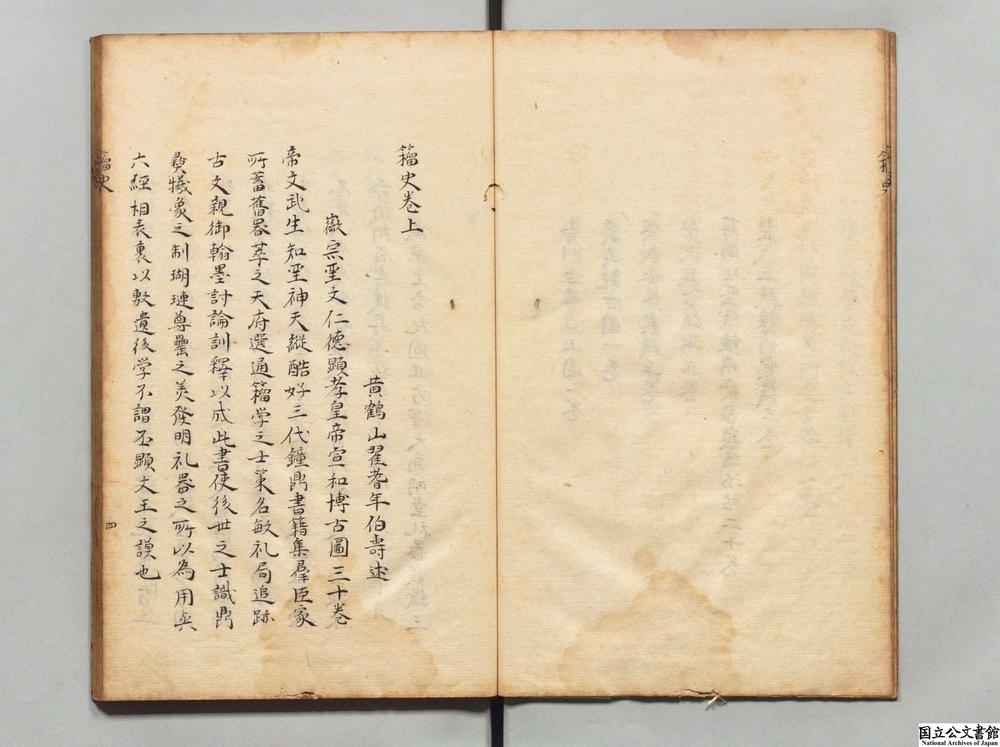 籀史卷上
黄鶴山翟耆年伯壽述
徽宗聖文仁德顯孝皇帝宣和博古圖三十卷
帝文武生知聖神天縱酷好三代鐘鼎書籍集羣臣家
所蓄舊器萃之天府選通籀学之士策名敏礼局追跡
古文親御翰墨討論訓釋以成此書使後世之士識鼎
彝犧象之制瑚璉尊罍之美發明礼器之所以為用與
六經相表裏以敷遺後学不謂丕顯文王之謨也
籀史
四
国立公文書館
National Archives of Japan